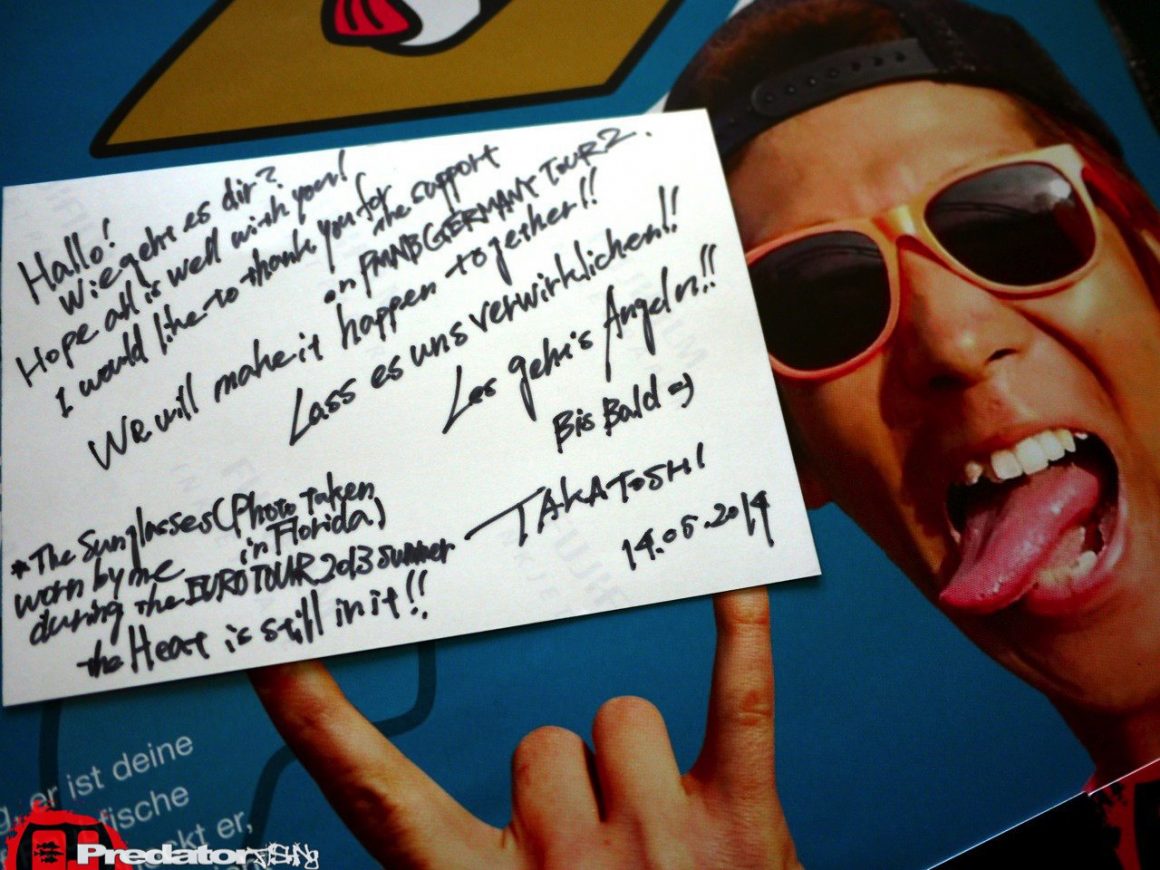 Hallo!
Wie geht es dir?
Hope all is well with you!
I would like to thank you for
the support
on PMNB GERMANY TOUR 2.
We will make it happen together!!
Lass es uns verwirklichen!!
Los geht's Angeln!!
Bis Bald =)
TAKATOSHI
14.05.2014
*The Sunglasses (Photo taken
in Florida)
worn by me
during the EURO TOUR 2013 summer
the Heat is still in it!!
g, er ist deine
fische
ckt er,
Predator FISHING